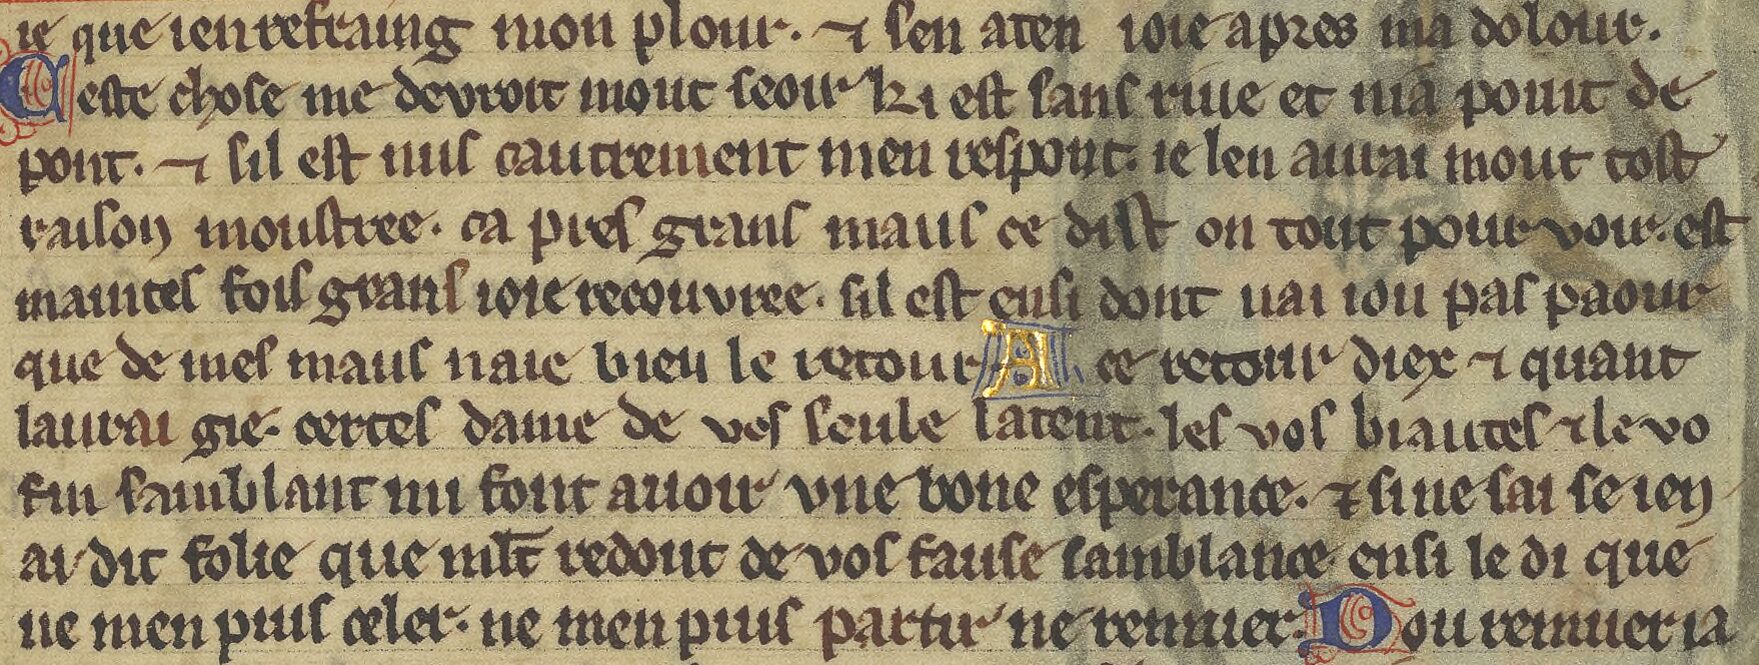 ie que ien refraing mon plour. ⁊ sen aten ioie apres ma dolour.
Ceste chose me devroit mout seoir ki est sans rive et na pouit de
pont. ⁊ sil est nus cautrement men respont. ie len aurai mout tost
raison moustree. ca pres grans maus ce dist on tout pour voir. est
maintes fois grans ioie recouvree. sil est ensi dont nai iou pas paour
que de mes maus naie bien le retour A ce retour diex ⁊ quant
laurai gie. certes dame de ves seule latent. les vos biautes ⁊ le vo
fin samblant mi font avoir vne bone esperance. ⁊ si ne sai se ien
ai dit folie que mlt redout de vos fause samblance ensi le di que
ne men puis celer. ne men puis partir ne remuer. Dou remuer ia